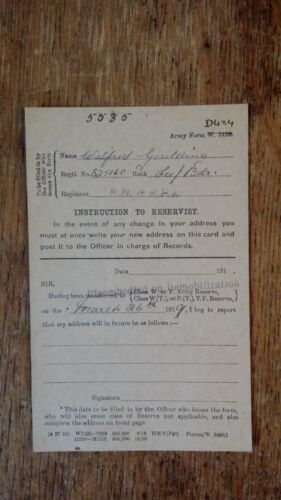 5535
D424
Army Form W. 3456.
To be filled in by the Officer who issues the form
Name Wilfred Goulding
Regtl. No. 525160 Rank
Regiment
INSTRUCTION TO RESERVIST.
In the event of any change in your address you
must at once write your new address on this card and
post it to the Officer in charge of Records.
Date 191 .
SIR,
Disembodied on Demobilization
Having been transferred to (Class W. to T. Army Reserve,
(Class W.(T.), or P.(T.), T.F. Reserve,
on the * March 26th 1919, I beg to report
that my address will in future be as follows :—
Signature
* This date to be filled in by the Officer who issues the form,
who will also erase class of Reserve not applicable, and also
complete the address on front page.